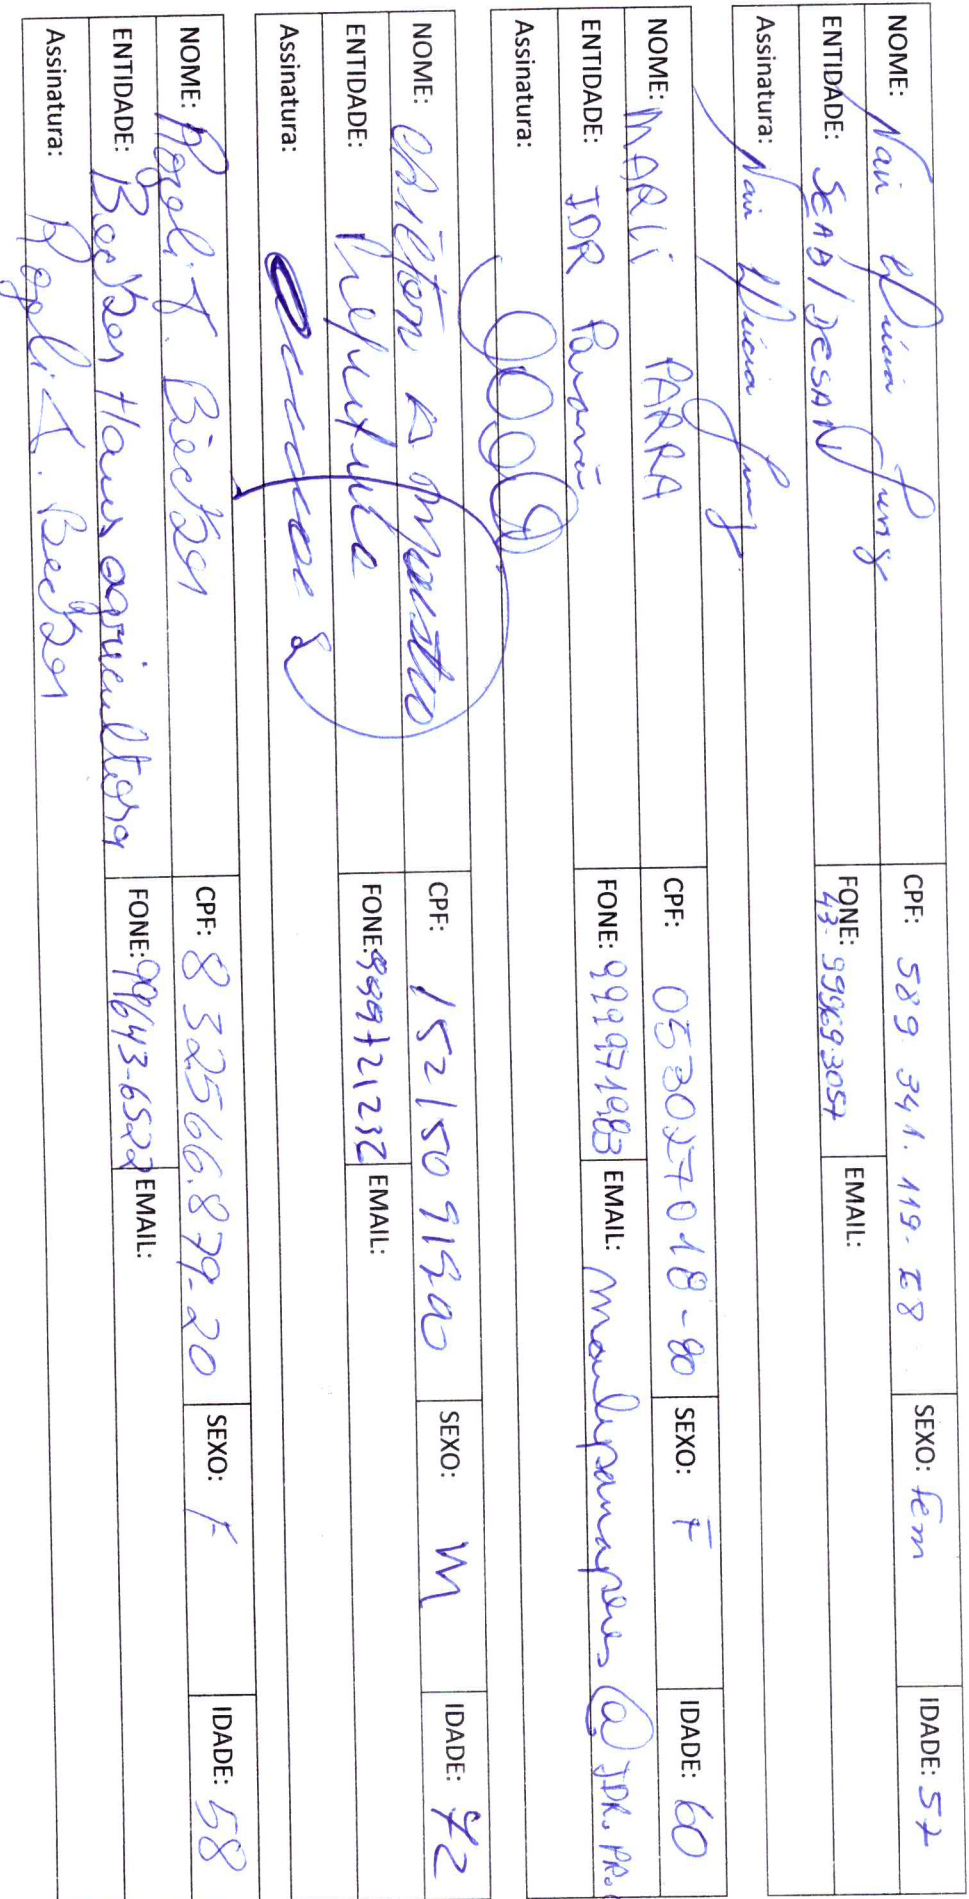 NOME: Nair Lúcia Jung CPF: 589 341. 119- 68 SEXO: Fem IDADE: 57
ENTIDADE: SEAB/DESAN FONE: 43- 999693057 EMAIL:
Assinatura: Nair Lúcia Jung
NOME: MARLi PARRA CPF: 053027018-90 SEXO: F IDADE: 60
ENTIDADE: IDR Paraná FONE: 999971983 EMAIL: @IDR.PR.
Assinatura:
NOME: CPF: 152150919 SEXO: M IDADE: 72
ENTIDADE: FONE: 999721232 EMAIL:
Assinatura:
NOME: Rozeli T. Becker CPF: 832566.879-20 SEXO: F IDADE: 58
ENTIDADE: Becker Haus agricultora FONE: 99643-6522 EMAIL:
Assinatura: Rozeli T. Becker